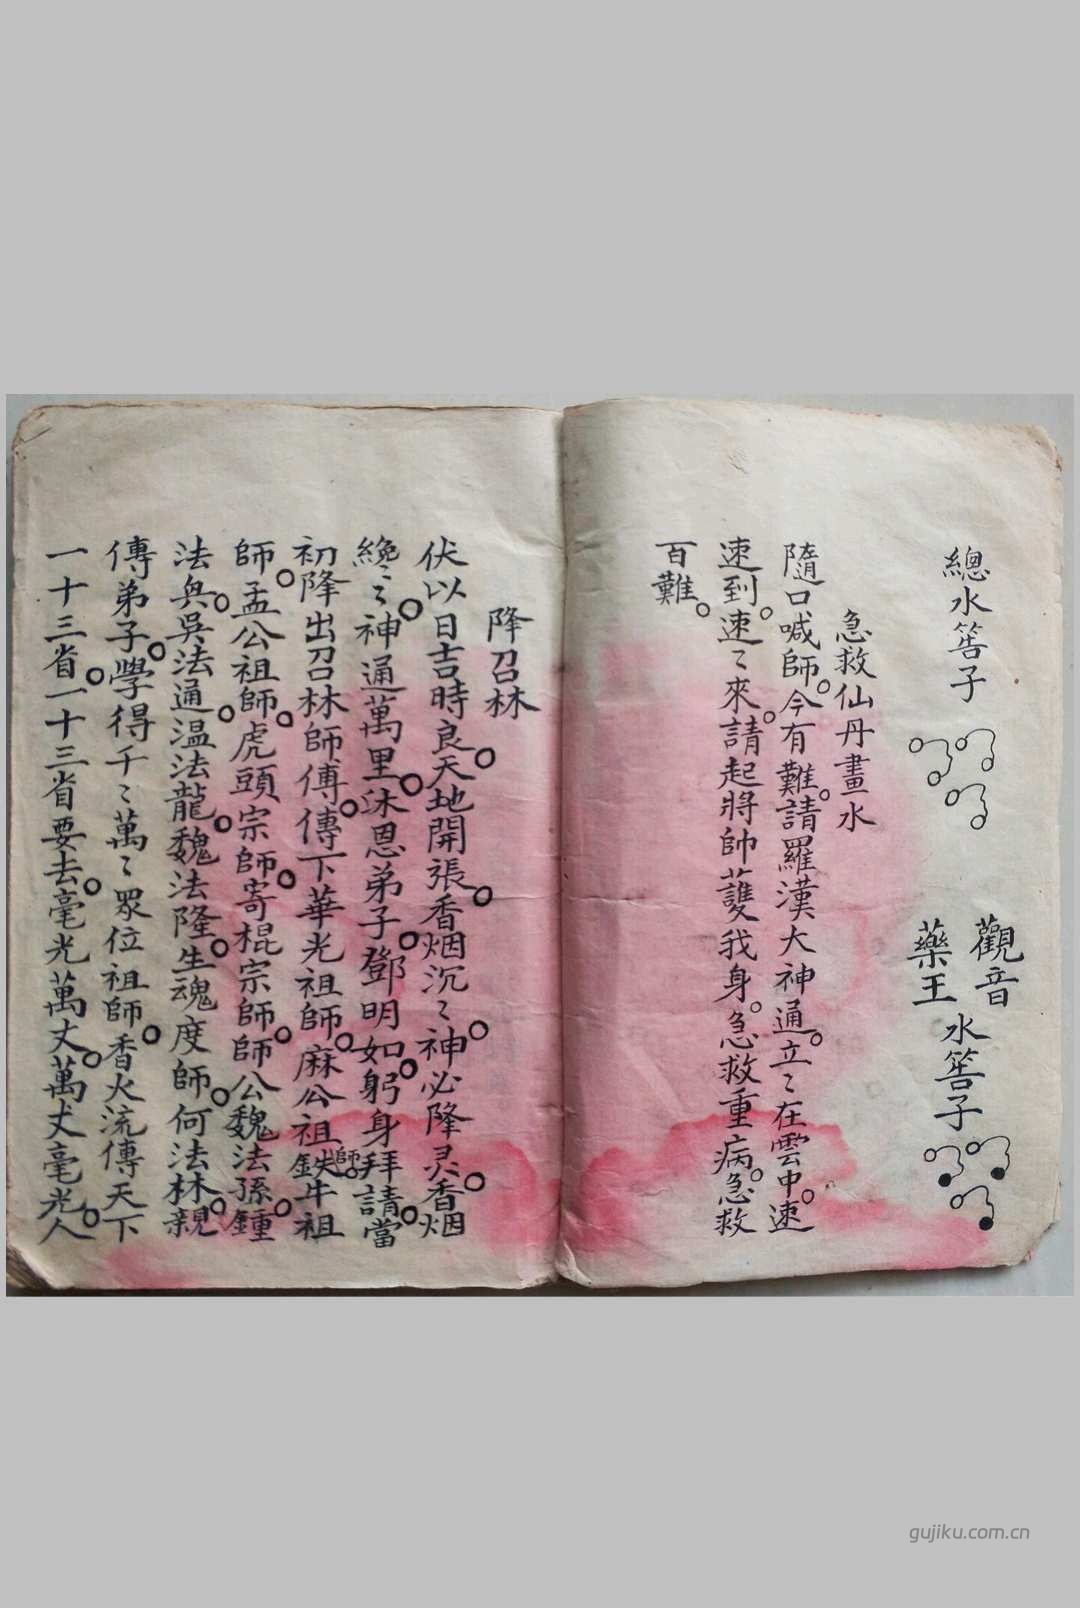 總水筶子
觀音
藥王
水筶子
急救仙丹畫水
隨口喊師。今有難。請羅漢大神通。立〻在雲中。速
速到。速〻來。請起將帥護我身。急救重病。急救
百難。
降召林
伏以日吉時良。天地開張。香烟沉〻。神必降灵。香烟
纔〻。神通萬里。沐恩弟子。鄧明如。躬身拜請。當
初降出召林師傅。傳下華光祖師。麻公祖師。鉄牛祖
師。孟公祖師。虎頭宗師。寄棍宗師。師公魏法孫。鍾
法兵。吳法通。温法龍。魏法隆。生魂度師。何法林。親
傳弟子。學得千〻萬〻眾位祖師。香火流傳天下
一十三省。一十三省要去。毫光萬丈。萬丈毫光。人
gujiku.com.cn